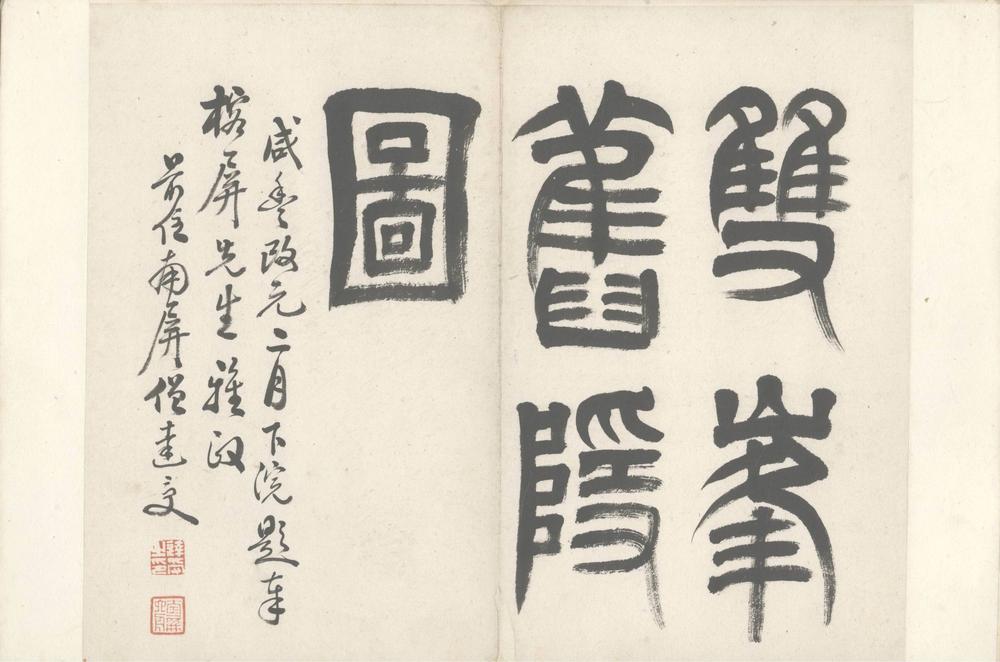 雙峯
舊隱
圖
咸豐改元二月下浣題奉
榕屏先生雅政
前住南屏僧達受